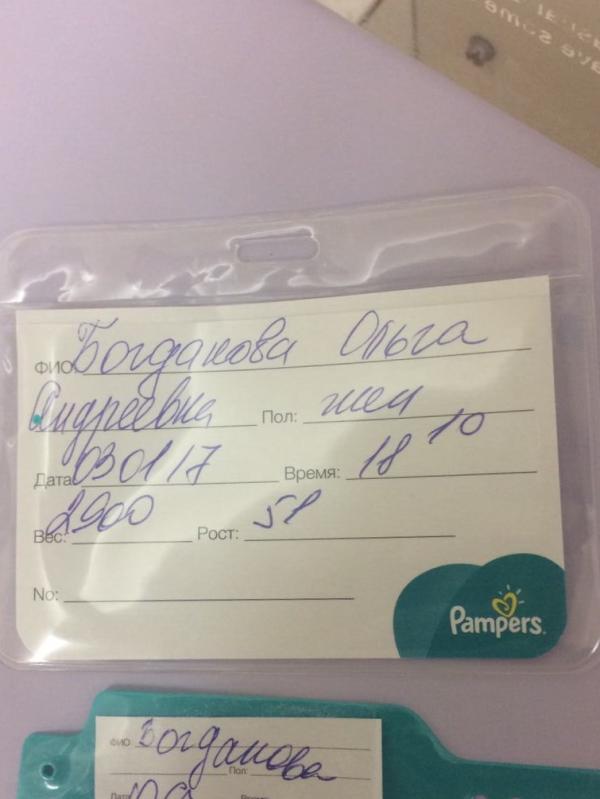 ФИО: Богданова Ольга
Андреевна Пол: жен
Дата: 030117 Время: 18 10
Вес: 2900 Рост: 51
No:
Pampers
ФИО Богданова
Пол:
Дата